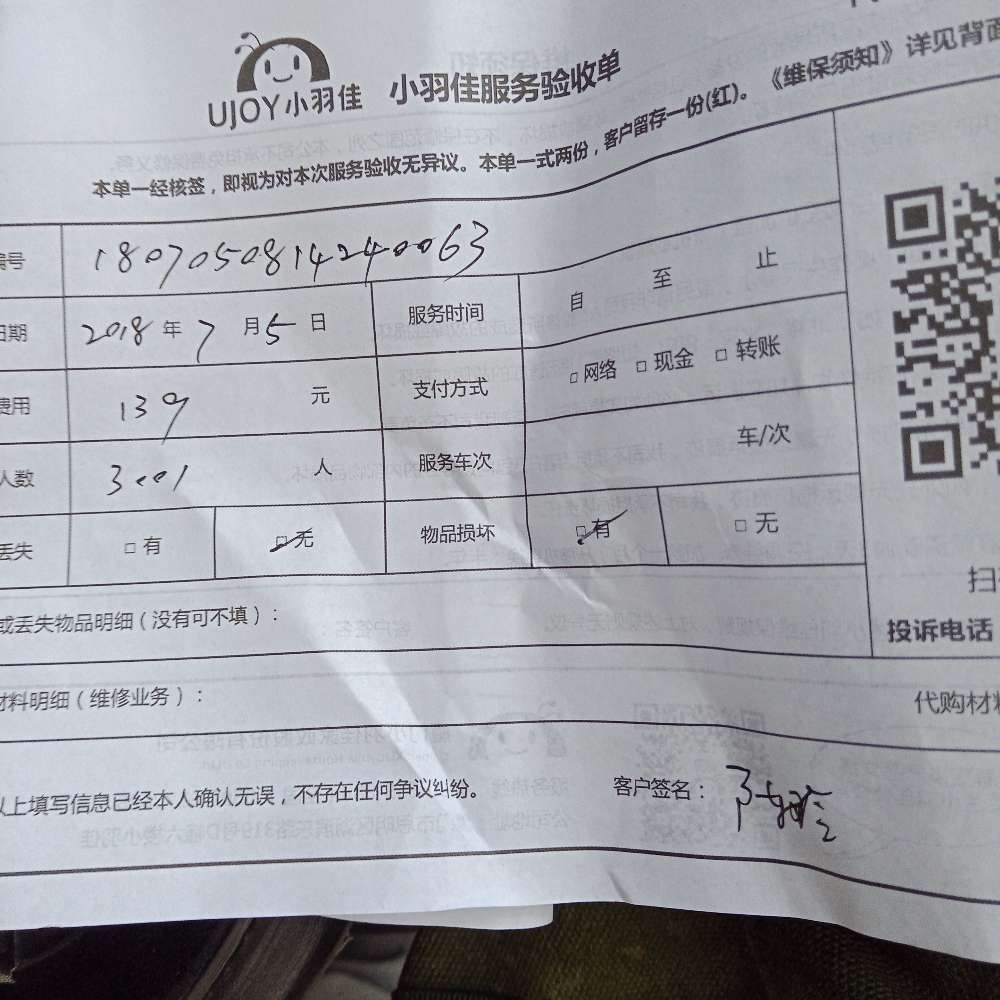 UJOY小羽佳 小羽佳服务验收单
本单一经核签，即视为对本次服务验收无异议。本单一式两份，客户留存一份(红)。《维保须知》详见背面
编号 18070508142400063
日期 2018 年 7 月 5 日 服务时间 自 至 止
费用 139 元 支付方式 □ 网络 □ 现金 □ 转账
人数 人 服务车次 车/次
丢失 □ 有 □ 无 物品损坏 □ 有 □ 无
或丢失物品明细（没有可不填）：
扫
投诉电话
材料明细（维修业务）： 代购材料
以上填写信息已经本人确认无误，不存在任何争议纠纷。 客户签名：